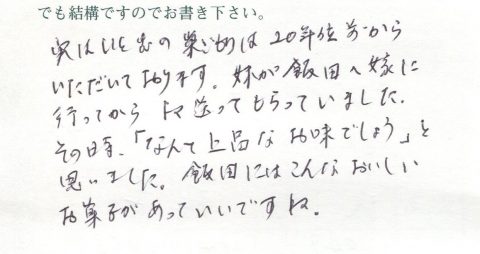 でも結構ですのでお書き下さい。
実はいと忠の巣ごもりは20年位前から
いただいております。妹が飯田へ嫁に
行ってから 時々送ってもらっていました。
その時、「なんて上品なお味でしょう」と
思いました。飯田にはこんなおいしい
お菓子があっていいですね。